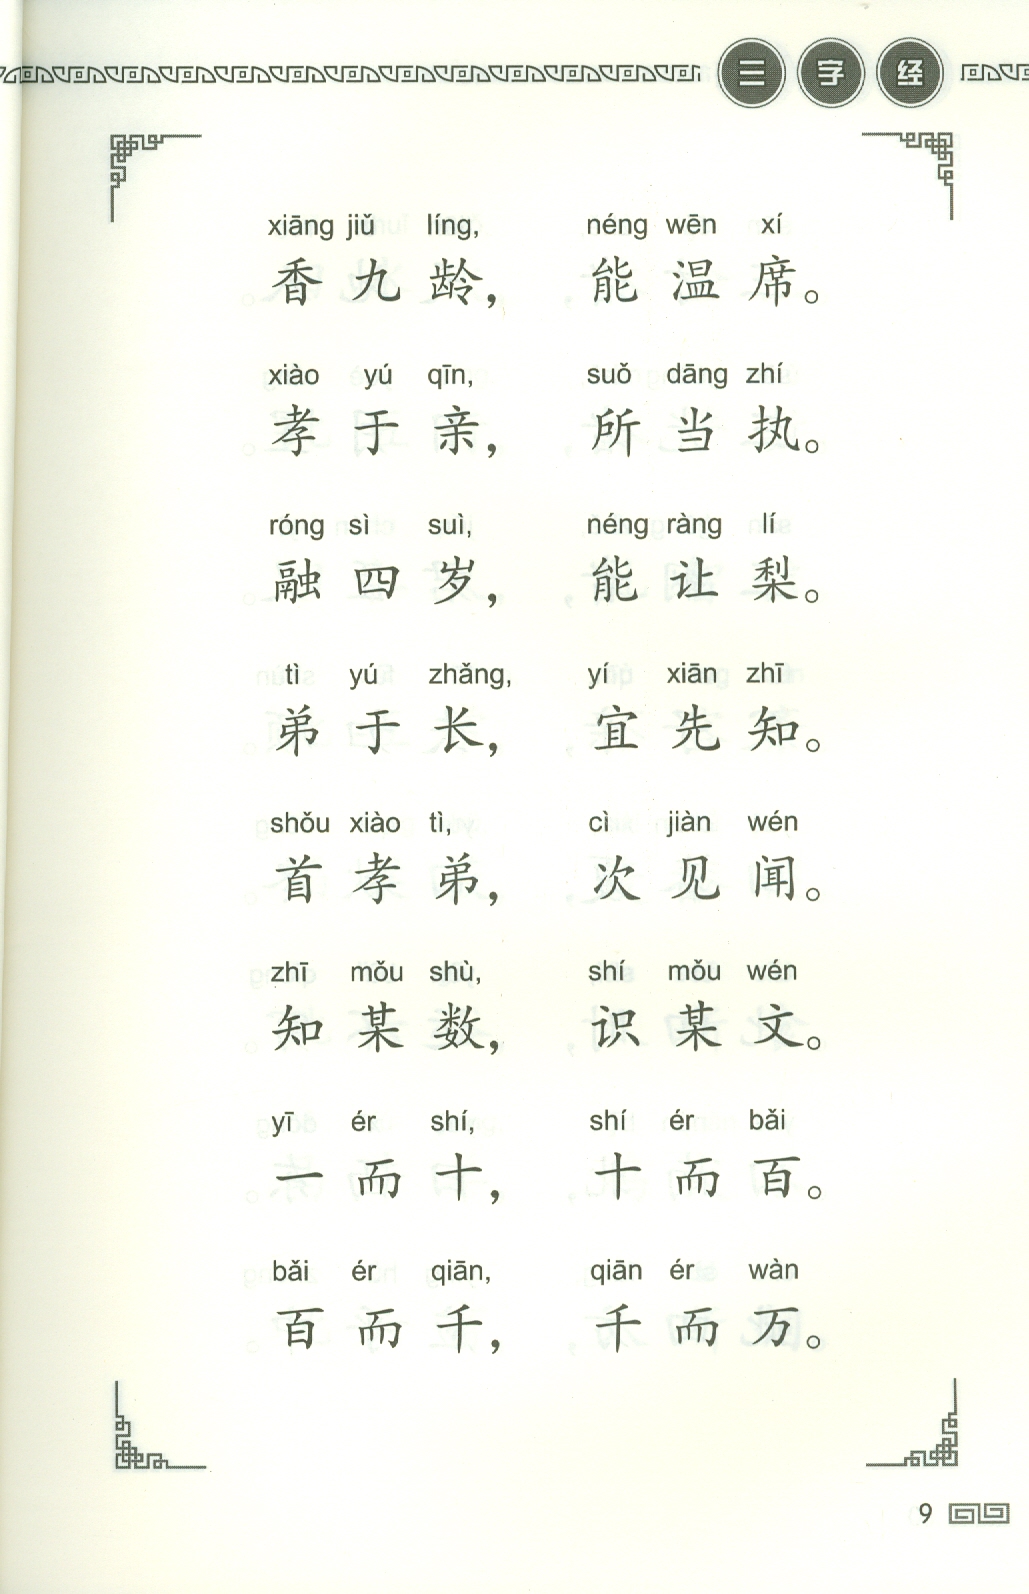 三字经
xiāng jiǔ líng, néng wēn xí
香九龄，能温席。
xiào yú qīn, suǒ dāng zhí
孝于亲，所当执。
róng sì suì, néng ràng lí
融四岁，能让梨。
tì yú zhǎng, yí xiān zhī
弟于长，宜先知。
shǒu xiào tì, cì jiàn wén
首孝弟，次见闻。
zhī mǒu shù, shí mǒu wén
知某数，识某文。
yī ér shí, shí ér bǎi
一而十，十而百。
bǎi ér qiān, qiān ér wàn
百而千，千而万。
9